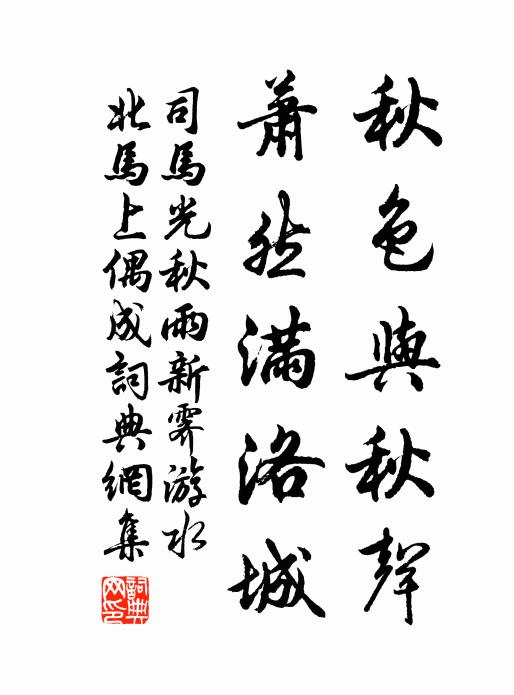 秋色與秋聲
蕭然滿洛城
司馬光秋雨新霽游水
北馬上偶成詞典網集
詞典
网印